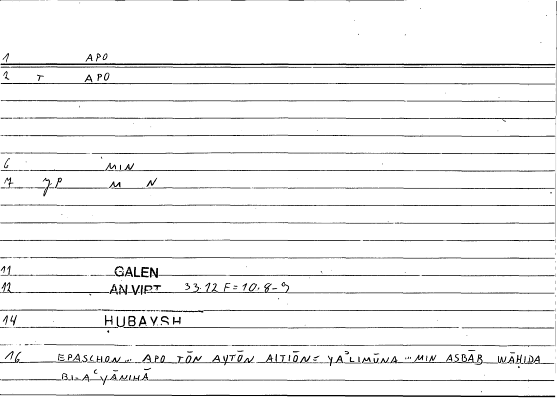 1 APO
2 T APO
6 MIN
7 JP M N
11 GALEN
12 AN VIRT 33.12 F = 10.8-9
14 HUBAYSH
16 EPASCHON... APO TŌN AYTŌN AITIŌN = YAʾLIMŪNA... MIN ASBĀB WĀḤIDA
BI-AʿYĀNIHĀ